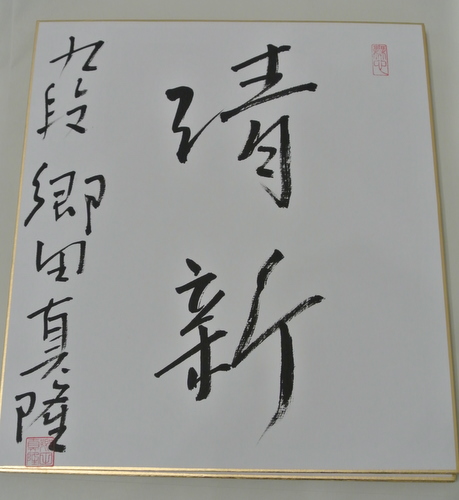 清新
九段 郷田真隆